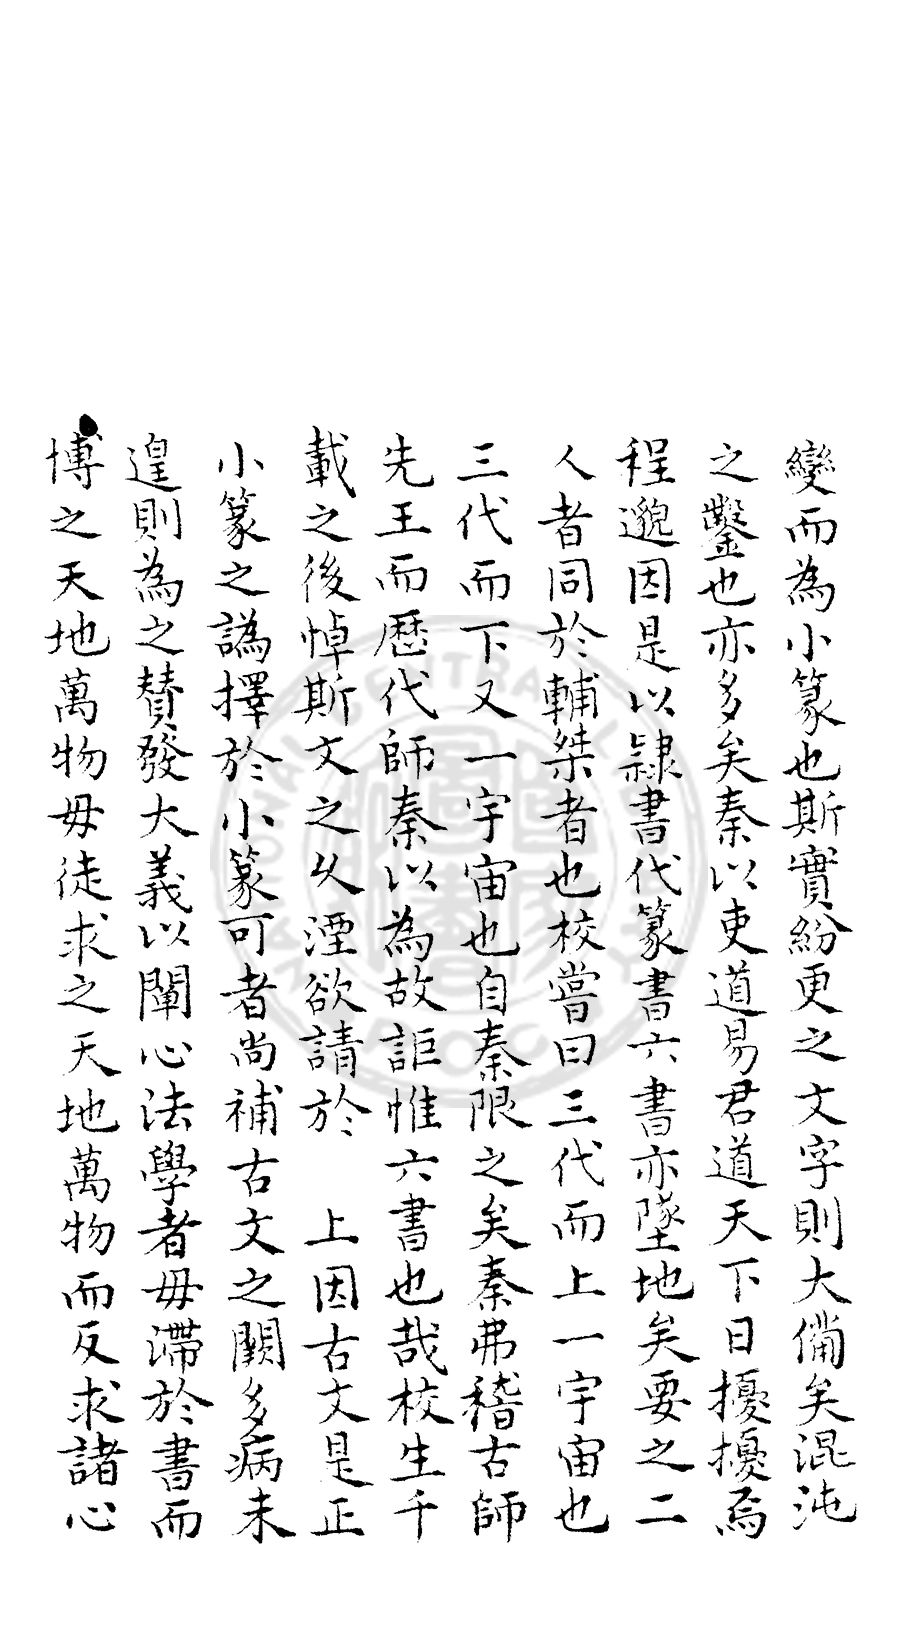 變而為小篆也斯實紛更之文字則大備矣混沌
之鑿也亦多矣秦以吏道易君道天下日擾擾焉
程邈因是以隷書代篆書六書亦墜地矣要之二
人者同於輔桀者也校嘗曰三代而上一宇宙也
三代而下又一宇宙也自秦限之矣秦弗稽古師
先王而歷代師秦以為故詎惟六書也哉校生千
載之後悼斯文之久湮欲請於　上因古文是正
小篆之譌擇於小篆可者尚補古文之闕多病未
遑則為之賛發大義以闡心法學者毋滯於書而
博之天地萬物毋徒求之天地萬物而反求諸心
NATIONAL CENTRAL LIBRARY